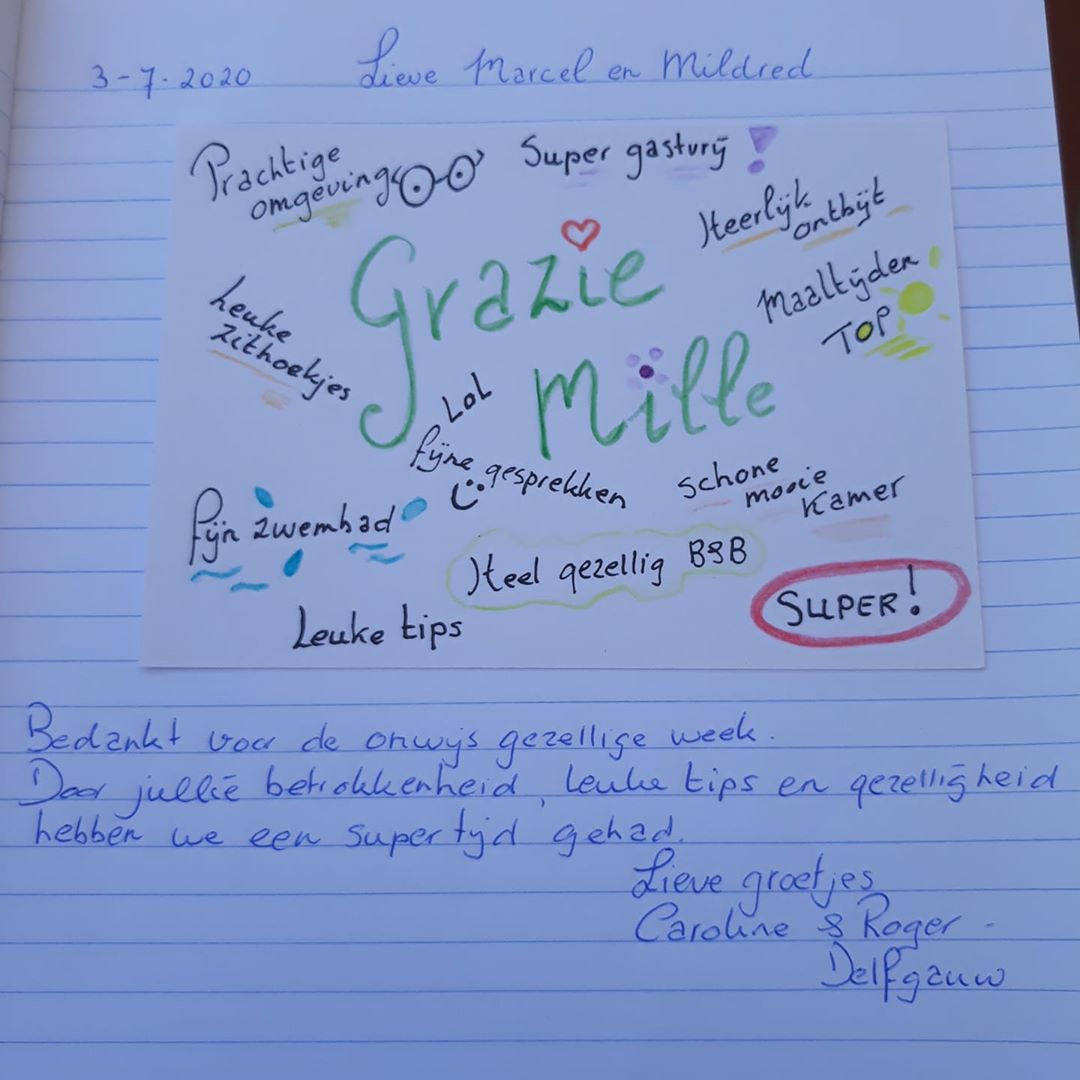 3-7-2020 Lieve Marcel en Mildred
Prachtige
omgeving
Super gastvrij!
Heerlijk
ontbijt
Grazie
Mille
Maaltijden
TOP
!
Leuke
zithoekjes
LOL
fijne gesprekken
schone
mooie
Kamer
fijn zwembad
Heel gezellig B&B
SUPER!
Leuke tips
Bedankt voor de onwijs gezellige week.
Door jullie betrokkenheid, leuke tips en gezelligheid
hebben we een super tijd gehad.
Lieve groetjes
Caroline & Roger -
Delfgauw